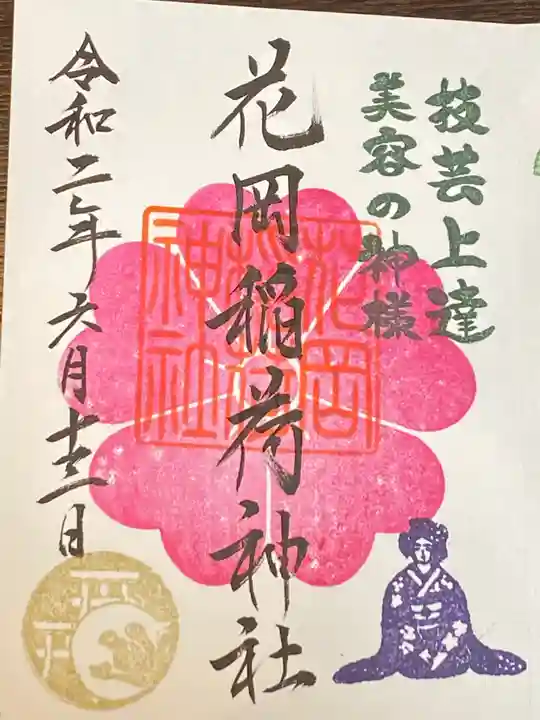 技芸上達
美容の神様
花岡稲荷神社
花岡
稲荷
神社
令和二年六月十三日